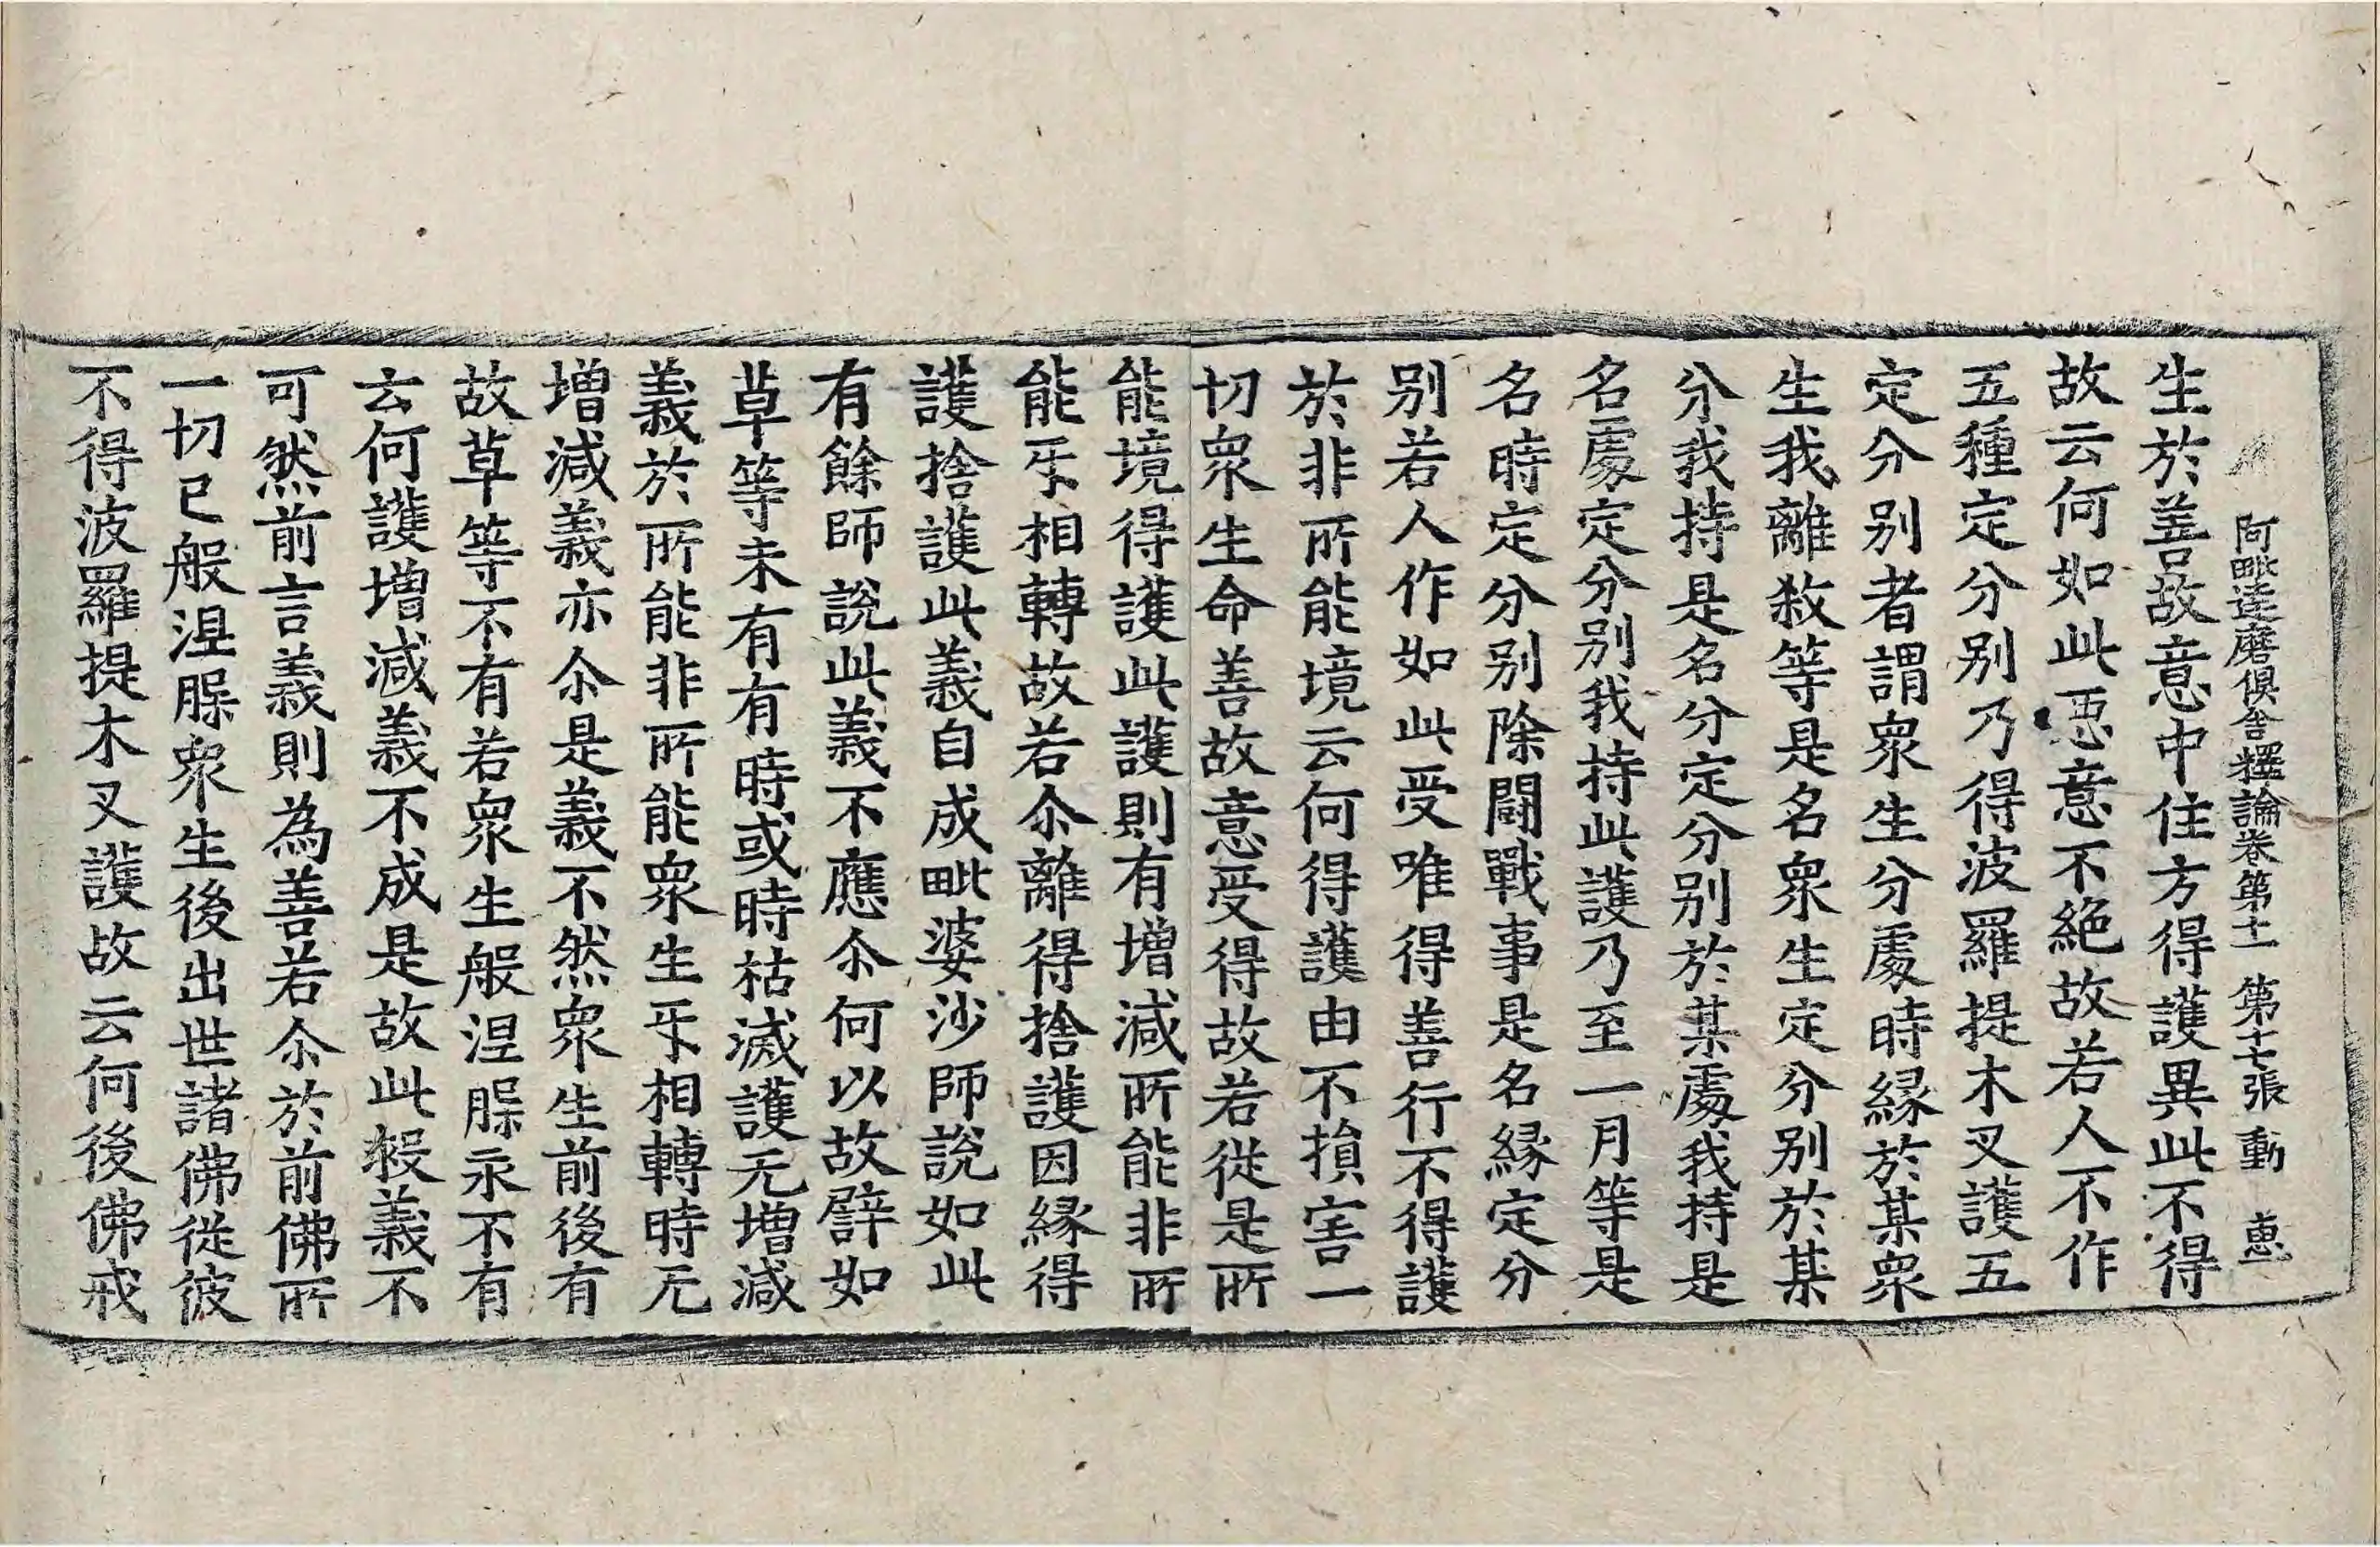 阿毗達磨俱舍釋論卷第十一 第十七張 動 惠
生於善故意中住方得護異此不得
故云何如此𢙣意不絶故若人不作
五種定分别乃得波羅提木叉護五
定分别者謂衆生分處時縁於某衆
生我離敎等是名衆生定分别於某
分我持是名分定分别於某處我持是
名處定分别我持此護乃至一月等是
名時定分别除鬪戰事是名縁定分
别若人作如此受唯得善行不得護
於非所能境云何得護由不損害一
切衆生命善故意受得故若從是所
能境得護此護則有增減所能非所
能㸦相轉故若尒離得捨護因縁得
護捨護此義自成毗婆沙師說如此
有餘師說此義不應尒何以故譬如
草等未有有時或時枯滅護无增減
義於所能非所能衆生㸦相轉時无
增減義亦尒是義不然衆生前後有
故草等不有若衆生般涅槃永不有
云何護增減義不成是故此𣪠義不
可然前言義則為善若尒於前佛所
一切已般涅槃衆生後出世諸佛從彼
不得波羅提木叉護故云何後佛戒